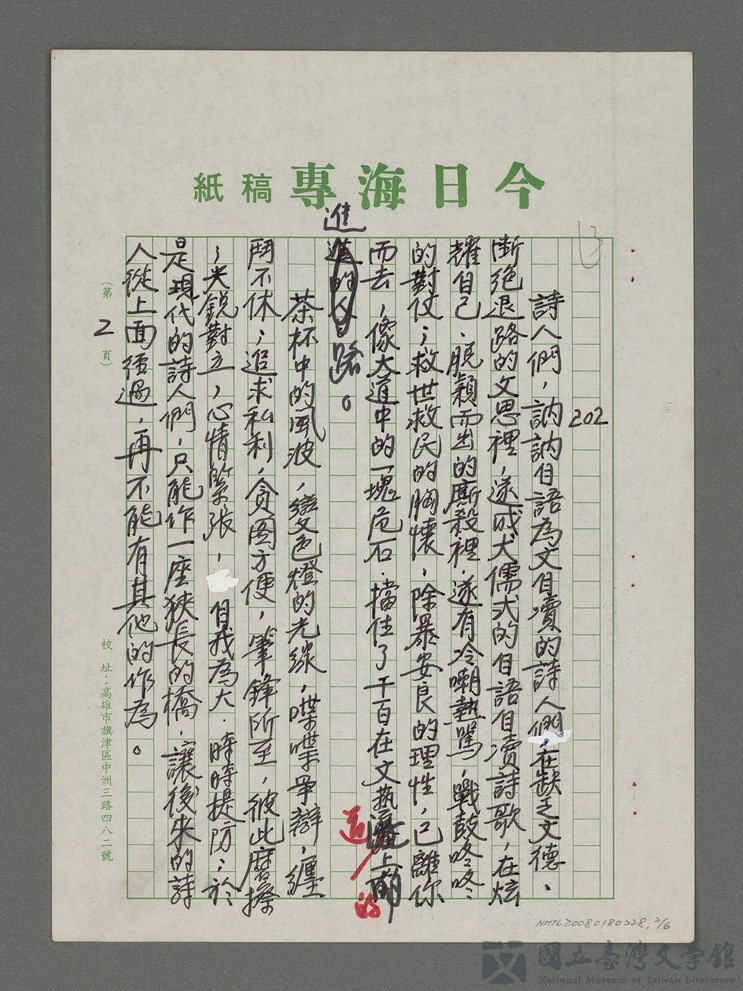 今日海專稿紙
13
202
詩人們，訥訥自語為文自瀆的詩人們，在缺乏文德、
斷絕退路的文思裡，遂成犬儒式的自語自瀆詩歌，在炫
耀自己、脫穎而出的廝殺裡，遂有冷嘲熱罵，戰鼓咚咚
的對仗；救世救民的胸懷，除暴安良的理性，已離你
而去，像大道中的一塊危石．擋住了千百在文藝道上前
的
進
的人路。
茶杯中的風波，變色燈的光線，喋喋爭辯，纏
鬥不休；追求私利，貪圖方便，筆鋒所至，彼此磨擦
，尖銳對立，心情緊張，自我為大．時時提防；於
是現代的詩人們，只能作一座狹長的橋，讓後來的詩
人從上面經過，再不能有其他的作為。
（第2頁）
校址：高雄市旗津區中洲三路四八二號
NMTL20080180228, 2/6
國立臺灣文學館
National Museum of Taiwan Literature